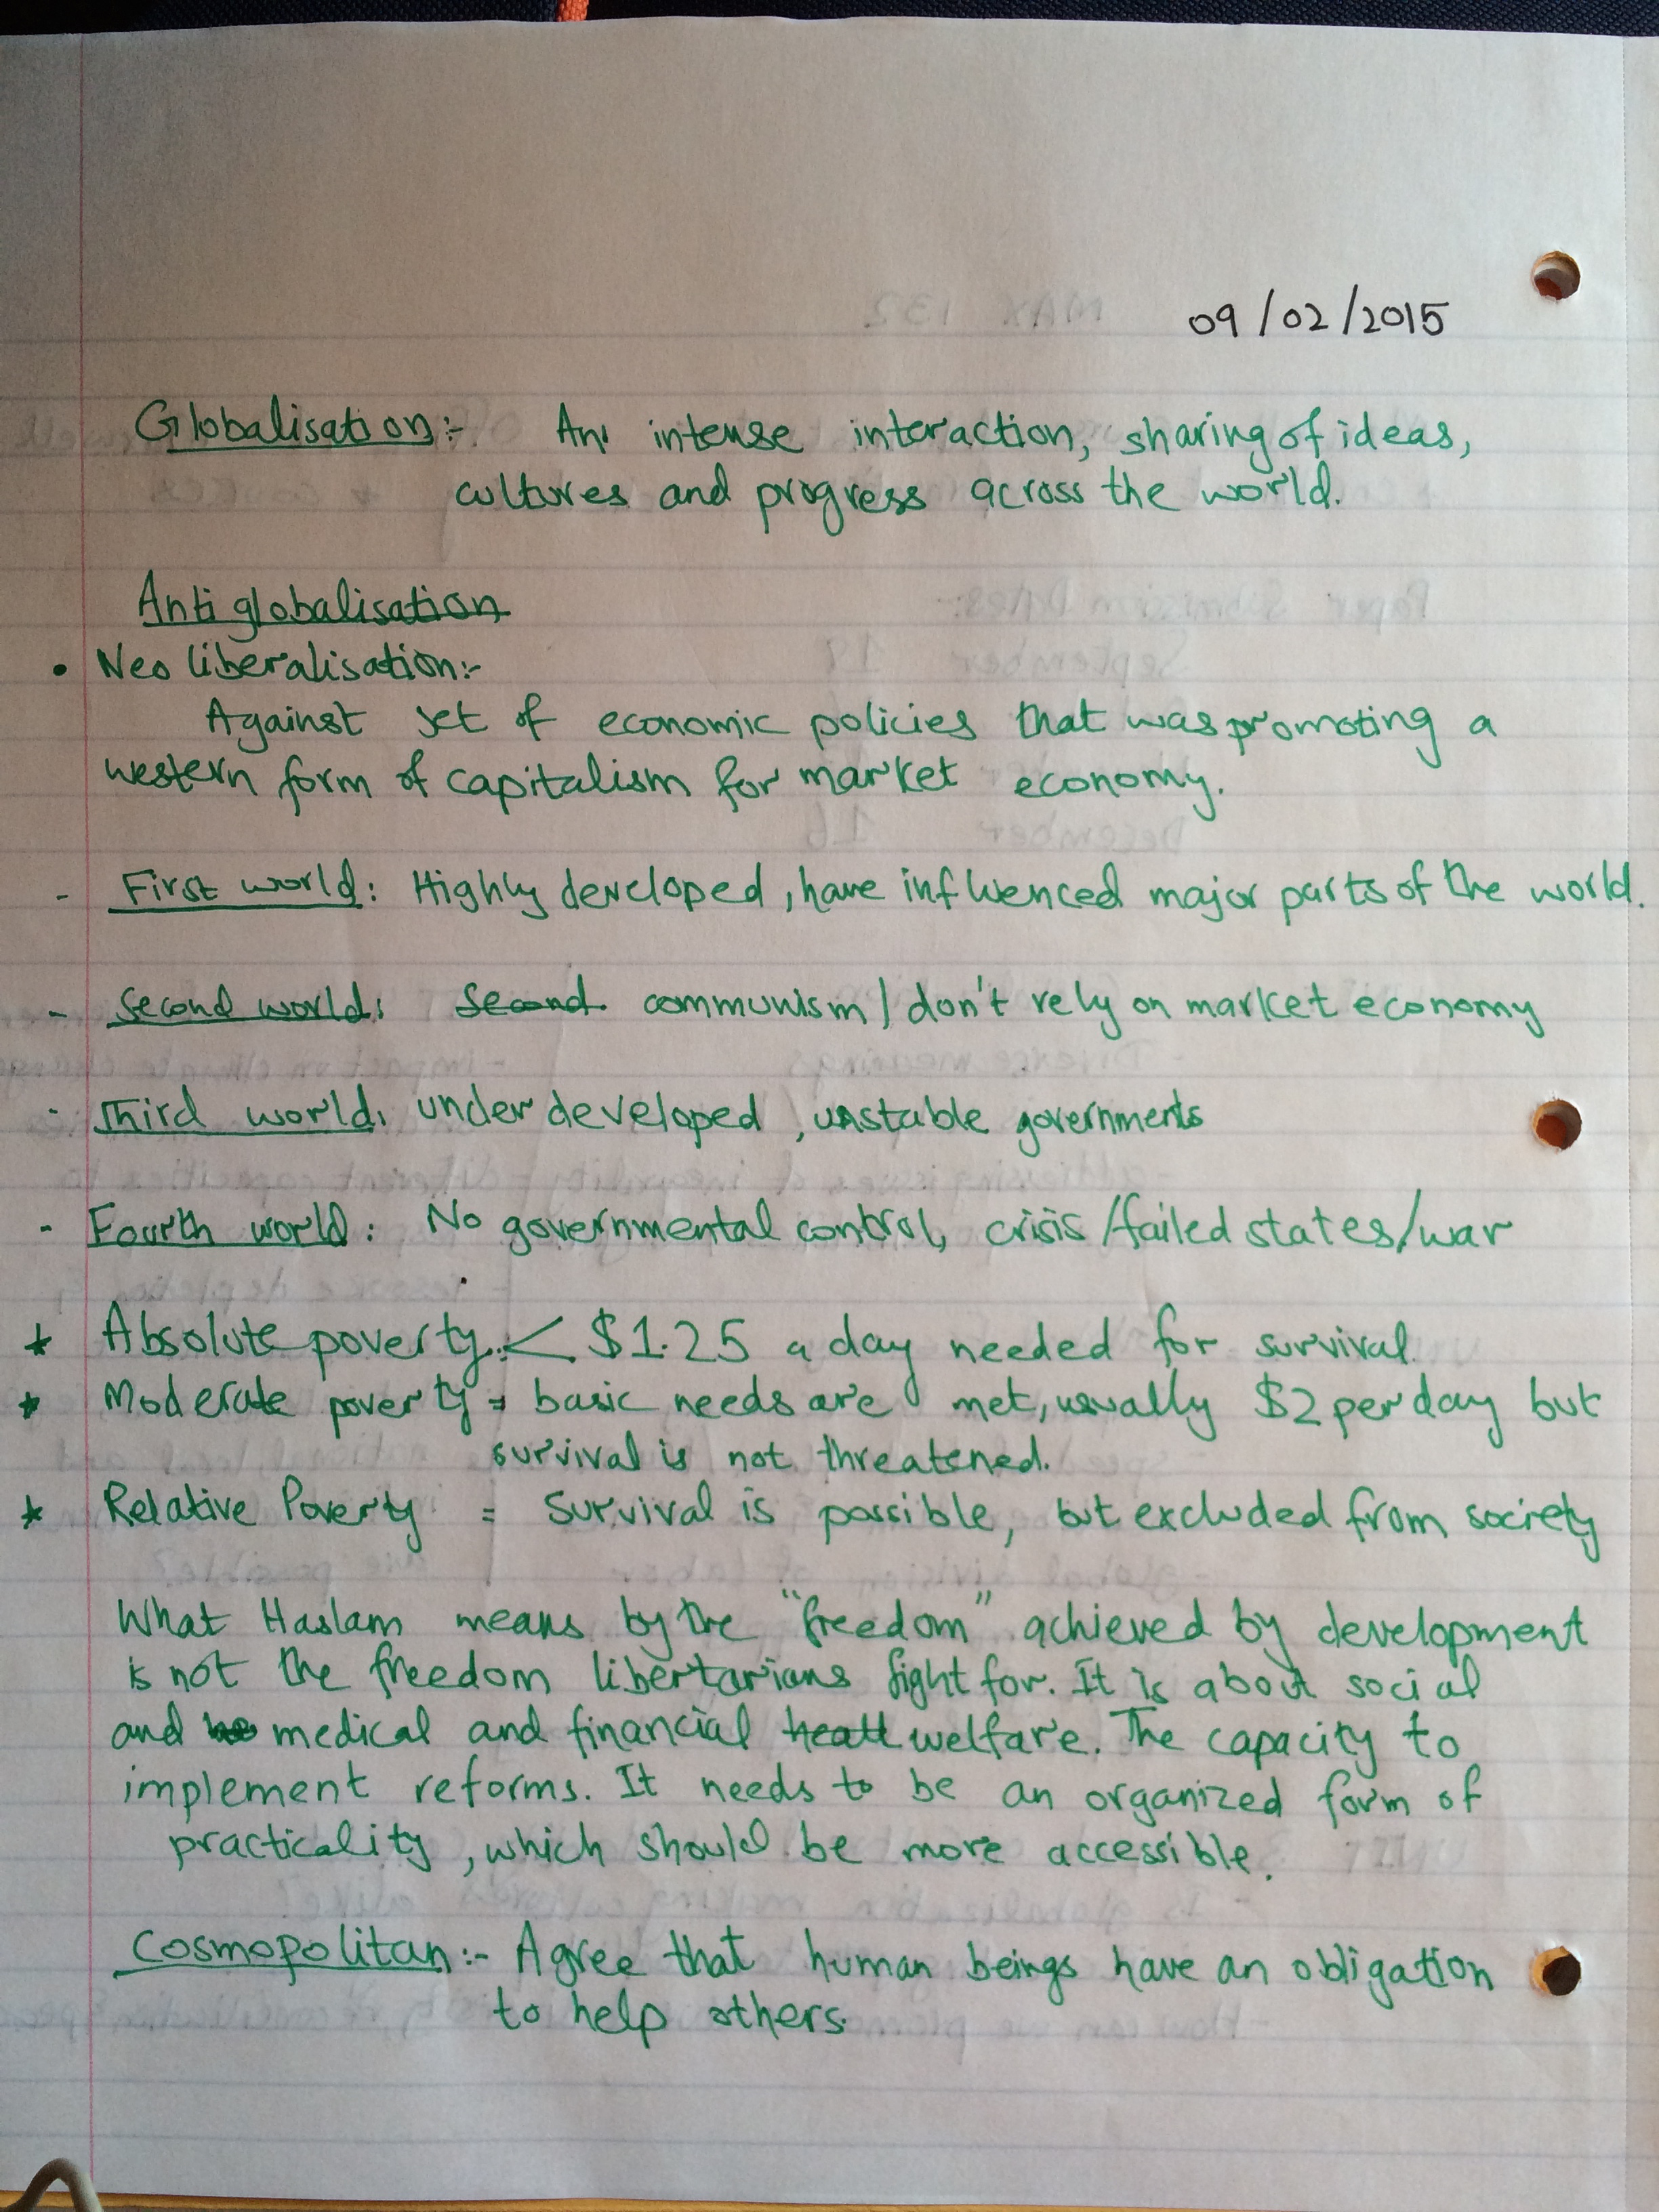 09/02/2015
Globalisation:- An intense interaction, sharing of ideas,
cultures and progress across the world.
Anti globalisation
• Neo liberalisation:-
Against set of economic policies that was promoting a
western form of capitalism for market economy.
- First world: Highly developed, have influenced major parts of the world.
- Second world: Second communism / don't rely on market economy
- Third world: underdeveloped, unstable governments
- Fourth world: No governmental control, crisis/failed states/war
* Absolute poverty:< $1.25 a day needed for survival.
* Moderate poverty = basic needs are met, usually $2 per day but
survival is not threatened.
* Relative Poverty = Survival is possible, but excluded from society
What Haslam means by the "freedom" achieved by development
is not the freedom libertarians fight for. It is about social
and medical and financial healt welfare. The capacity to
implement reforms. It needs to be an organized form of
practicality, which should be more accessible.
Cosmopolitan:- Agree that human beings have an obligation
to help others.